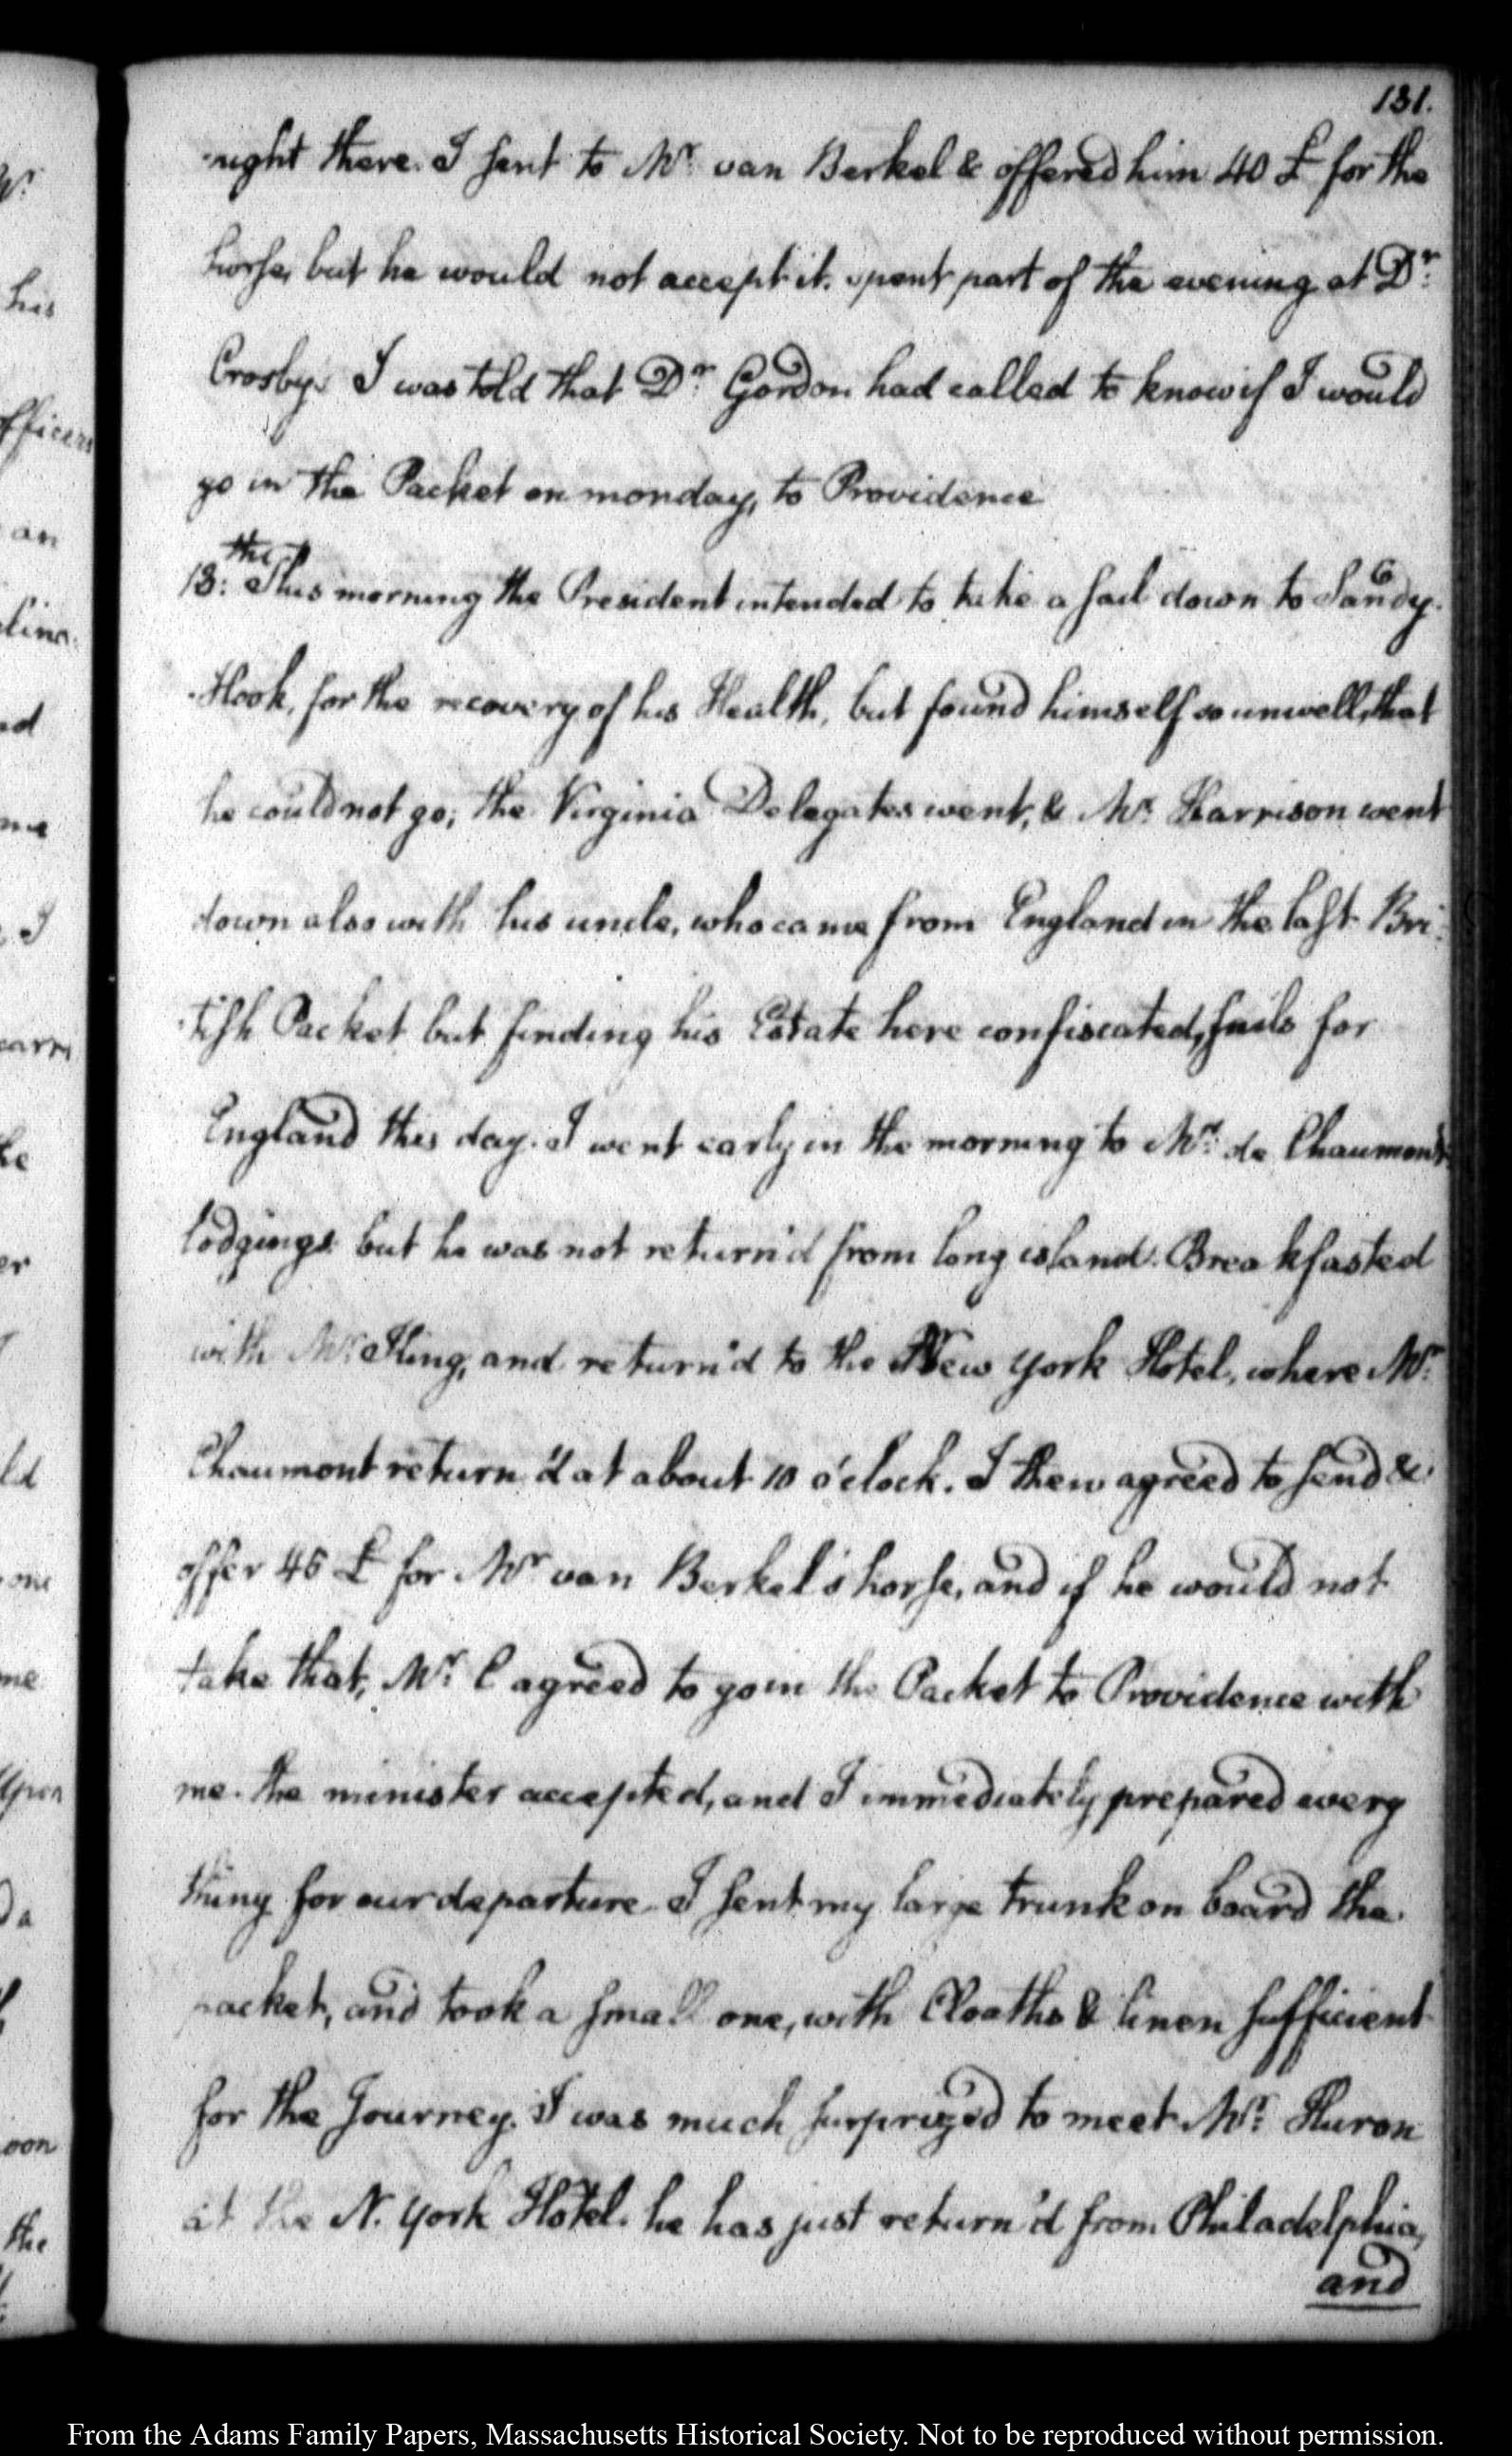 131.
night there. I sent to Mr. van Berkel & offered him 40 £ for the
horse, but he would not accept it. spent part of the evening at Dr.
Crosby's I was told that Dr. Gordon had called to know if I would
go in the Packet on monday, to Providence
13:the This morning the President intended to take a sail down to Sandy-
-Hook, for the recovery of his Health, but found himself so unwell, that
he could not go; the Virginia Delegates went, & Mr. Harrison went
down also with his uncle, who came from England in the last Bri-
-tish Packet but finding his Estate here confiscated, sails for
England this day. I went early in the morning to Mr. de Chaumont's
lodgings but he was not return'd from long island. Breakfasted
with Mr. King, and return'd to the New York Hotel, where Mr.
Chaumont return'd at about 10 o'clock. I then agreed to send &
offer 45 £ for Mr van Berkel's horse, and if he would not
take that, Mr. C agreed to go in the Packet to Providence with
me. the minister accepted, and I immediately prepared every
thing for our departure. I sent my large trunk on board the
packet, and took a small one, with Cloaths & linen sufficient
for the Journey. I was much surprized to meet Mr. Huron
at the N. York Hotel. he has just return'd from Philadelphia,
and
his
officers
an
lina.
I
the
er
ld
one
me
Upon
oon
the
From the Adams Family Papers, Massachusetts Historical Society. Not to be reproduced without permission.